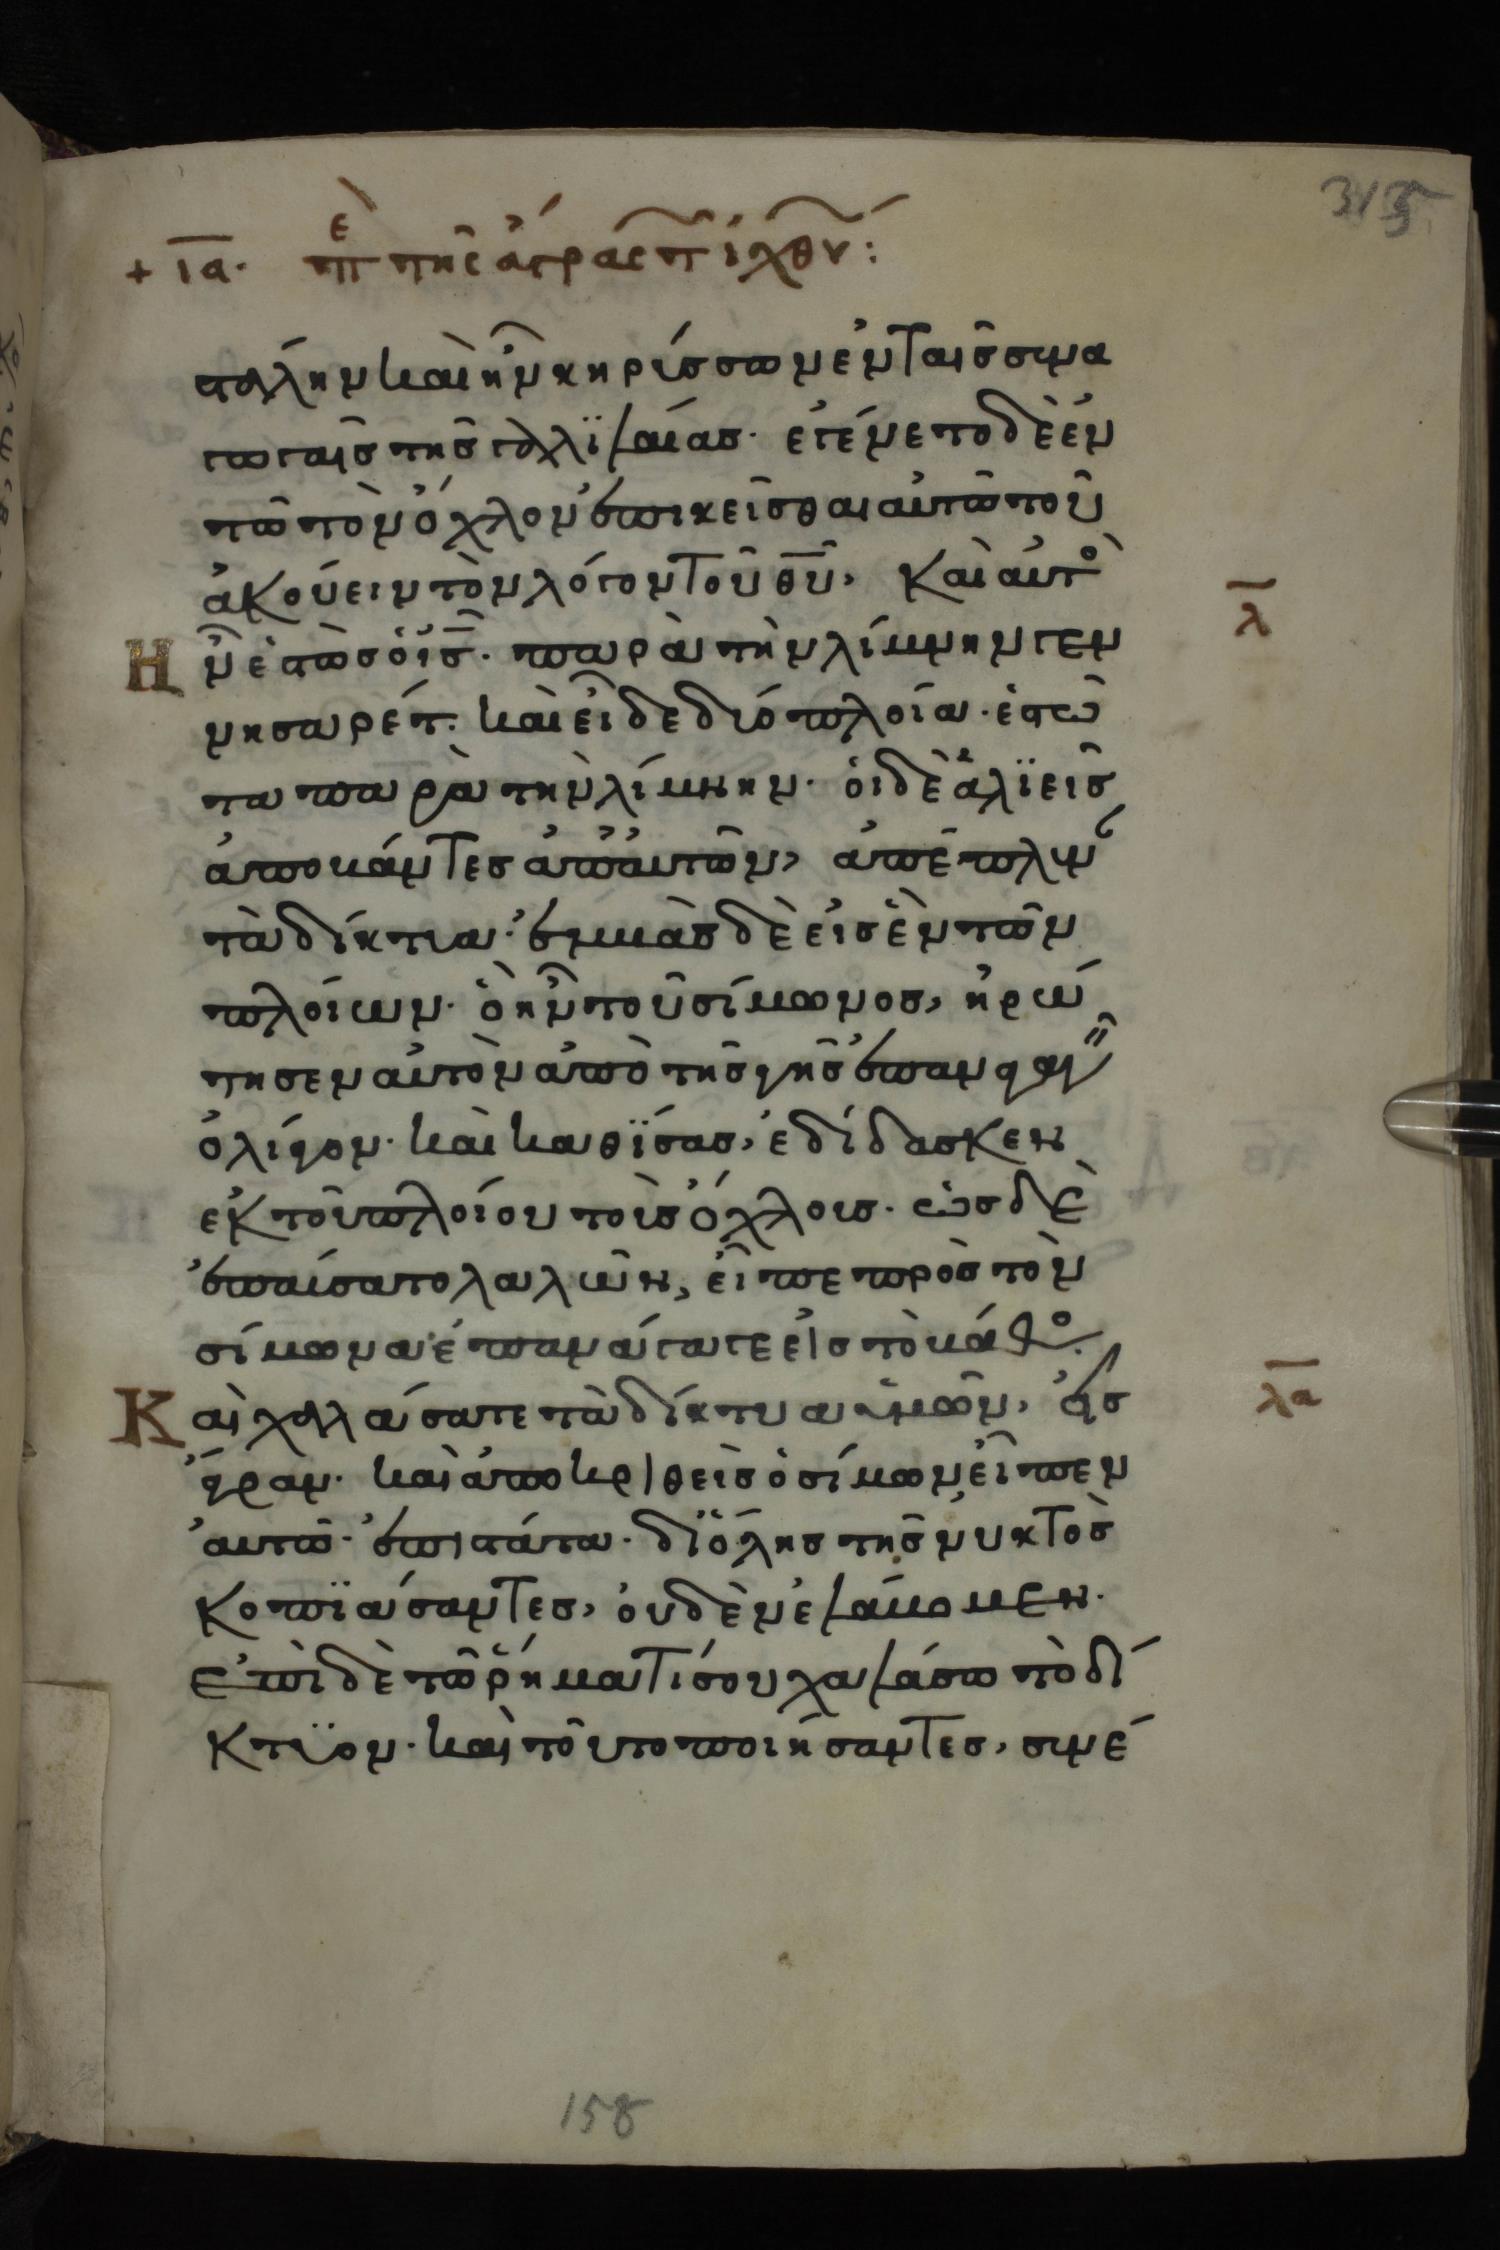 315
+ ια· ἐπι τῆς ἄγρας τ ἰχθύ:
στάλην καὶ ἦν κηρύσσων ἐν ταῖς συνα
γωγαῖς τῆς γαλιλαίας· ἐγένετο δὲ ἐν
τῶ τὸν ὄχλον ἐπικεῖσθαι αὐτῶ τοῦ
ἀκούειν τὸν λόγον τοῦ θῦ, καὶ αὐτὸ
λ
Ην ἑστὼς ὁ ις· παρὰ τὴν λίμνην γεν
νησαρέτ· καὶ εἶδε δύο πλοῖα· ἑστῶ
τα παρὰ τὴν λίμνην· οἱ δὲ ἁλϊεῖς
ἀποβάντες ἀπ' αὐτῶν, ἀπέπλυν
τὰ δίκτυα· ἐμβὰς δὲ εἰς ἓν τῶν
πλοίων· ὃ ἦν τοῦ σίμωνος, ἠρώ
τησεν αὐτὸν ἀπὸ τῆς γῆς ἐπαναγαγεῖν
ὀλίγον· καὶ καθΐσας, ἐδίδασκεν
ἐκ τοῦ πλοίου τοὺς ὄχλους· ὡς δὲ
ἐπαύσατο λαλῶν, εἶπε πρὸς τὸν
σίμωνα· ἐπανάγαγε εἰς τὸ βάθο·
λα
Καὶ χαλάσατε τὰ δίκτυα ὑμῶν, εἰς
ἄγραν· καὶ ἀποκριθεὶς ὁ σίμων εἶπεν
αὐτῶ· ἐπιστάτα· δι' ὅλης τῆς νυκτὸς
κοπϊάσαντες, οὐδὲν ἐλάβομεν·
ἐπὶ δὲ τῶ ῥήματί σου χαλάσω τὸ δί
κτυον· καὶ τοῦτο ποιήσαντες, συνέ
158